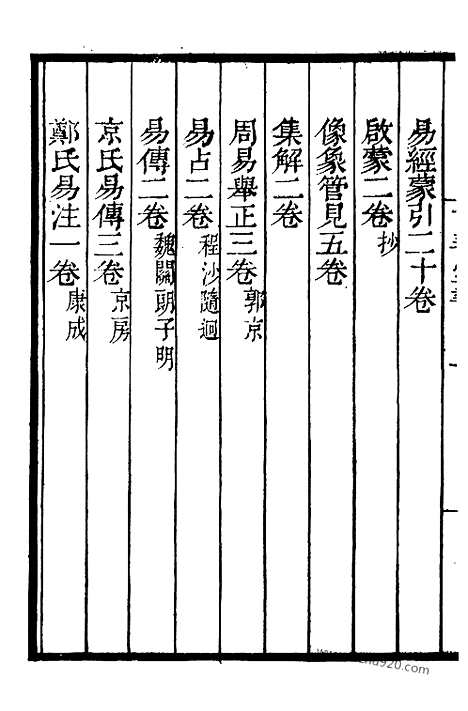 易經蒙引二十卷
啟蒙二卷抄
像象管見五卷
集解二卷
周易舉正三卷郭京
易占二卷程沙隨迥
易傳二卷魏關朗子明
京氏易傳三卷京房
鄭氏易注一卷康成